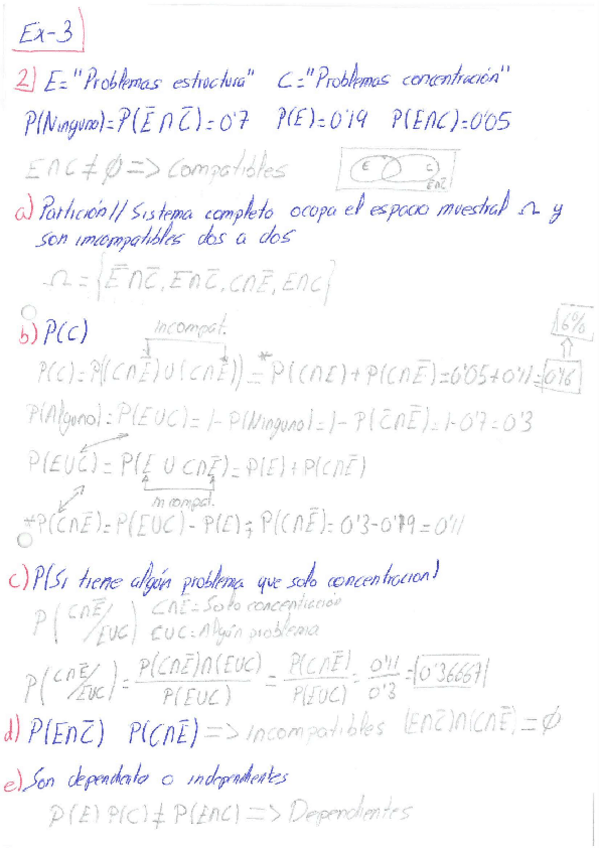 Ex-3
2) E="Problemas estructura" C="Problemas concentración"
P(Ninguno)=P(E̅∩C̅)=0'7 P(E)=0'19 P(E∩C)=0'05
E∩C≠∅ => Compatibles
E C
E̅∩C̅
a) Partición // Sistema completo ocupa el espacio muestral Ω y
son imcompatibles dos a dos
Ω={E̅∩C̅, E∩C̅, C∩E̅, E∩C}
b) P(C)
incompat.
16%
P(C)=P((C∩E)∪(C∩E̅))=*P(C∩E)+P(C∩E̅)=0'05+0'11=0'16
P(Alguno)=P(E∪C)=1-P(Ninguno)=1-P(C̅∩E̅)=1-0'7=0'3
P(E∪C)=P(E∪C∩E̅)=P(E)+P(C∩E̅)
incompat.
*P(C∩E̅)=P(E∪C)-P(E); P(C∩E̅)=0'3-0'19=0'11
c) P(Si tiene algún problema que solo concentracion)
P(C∩E̅/E∪C) C∩E̅=Solo concentración
E∪C=Algún problema
P(C∩E̅/E∪C)=P(C∩E̅)∩(E∪C)/P(E∪C)=P(C∩E̅)/P(E∪C)=0'11/0'3=0'36667
d) P(E∩C̅) P(C∩E̅) => Incompatibles (E∩C̅)∩(C∩E̅)=∅
e) Son dependiente o independientes
P(E) P(C)≠P(E∩C) => Dependientes